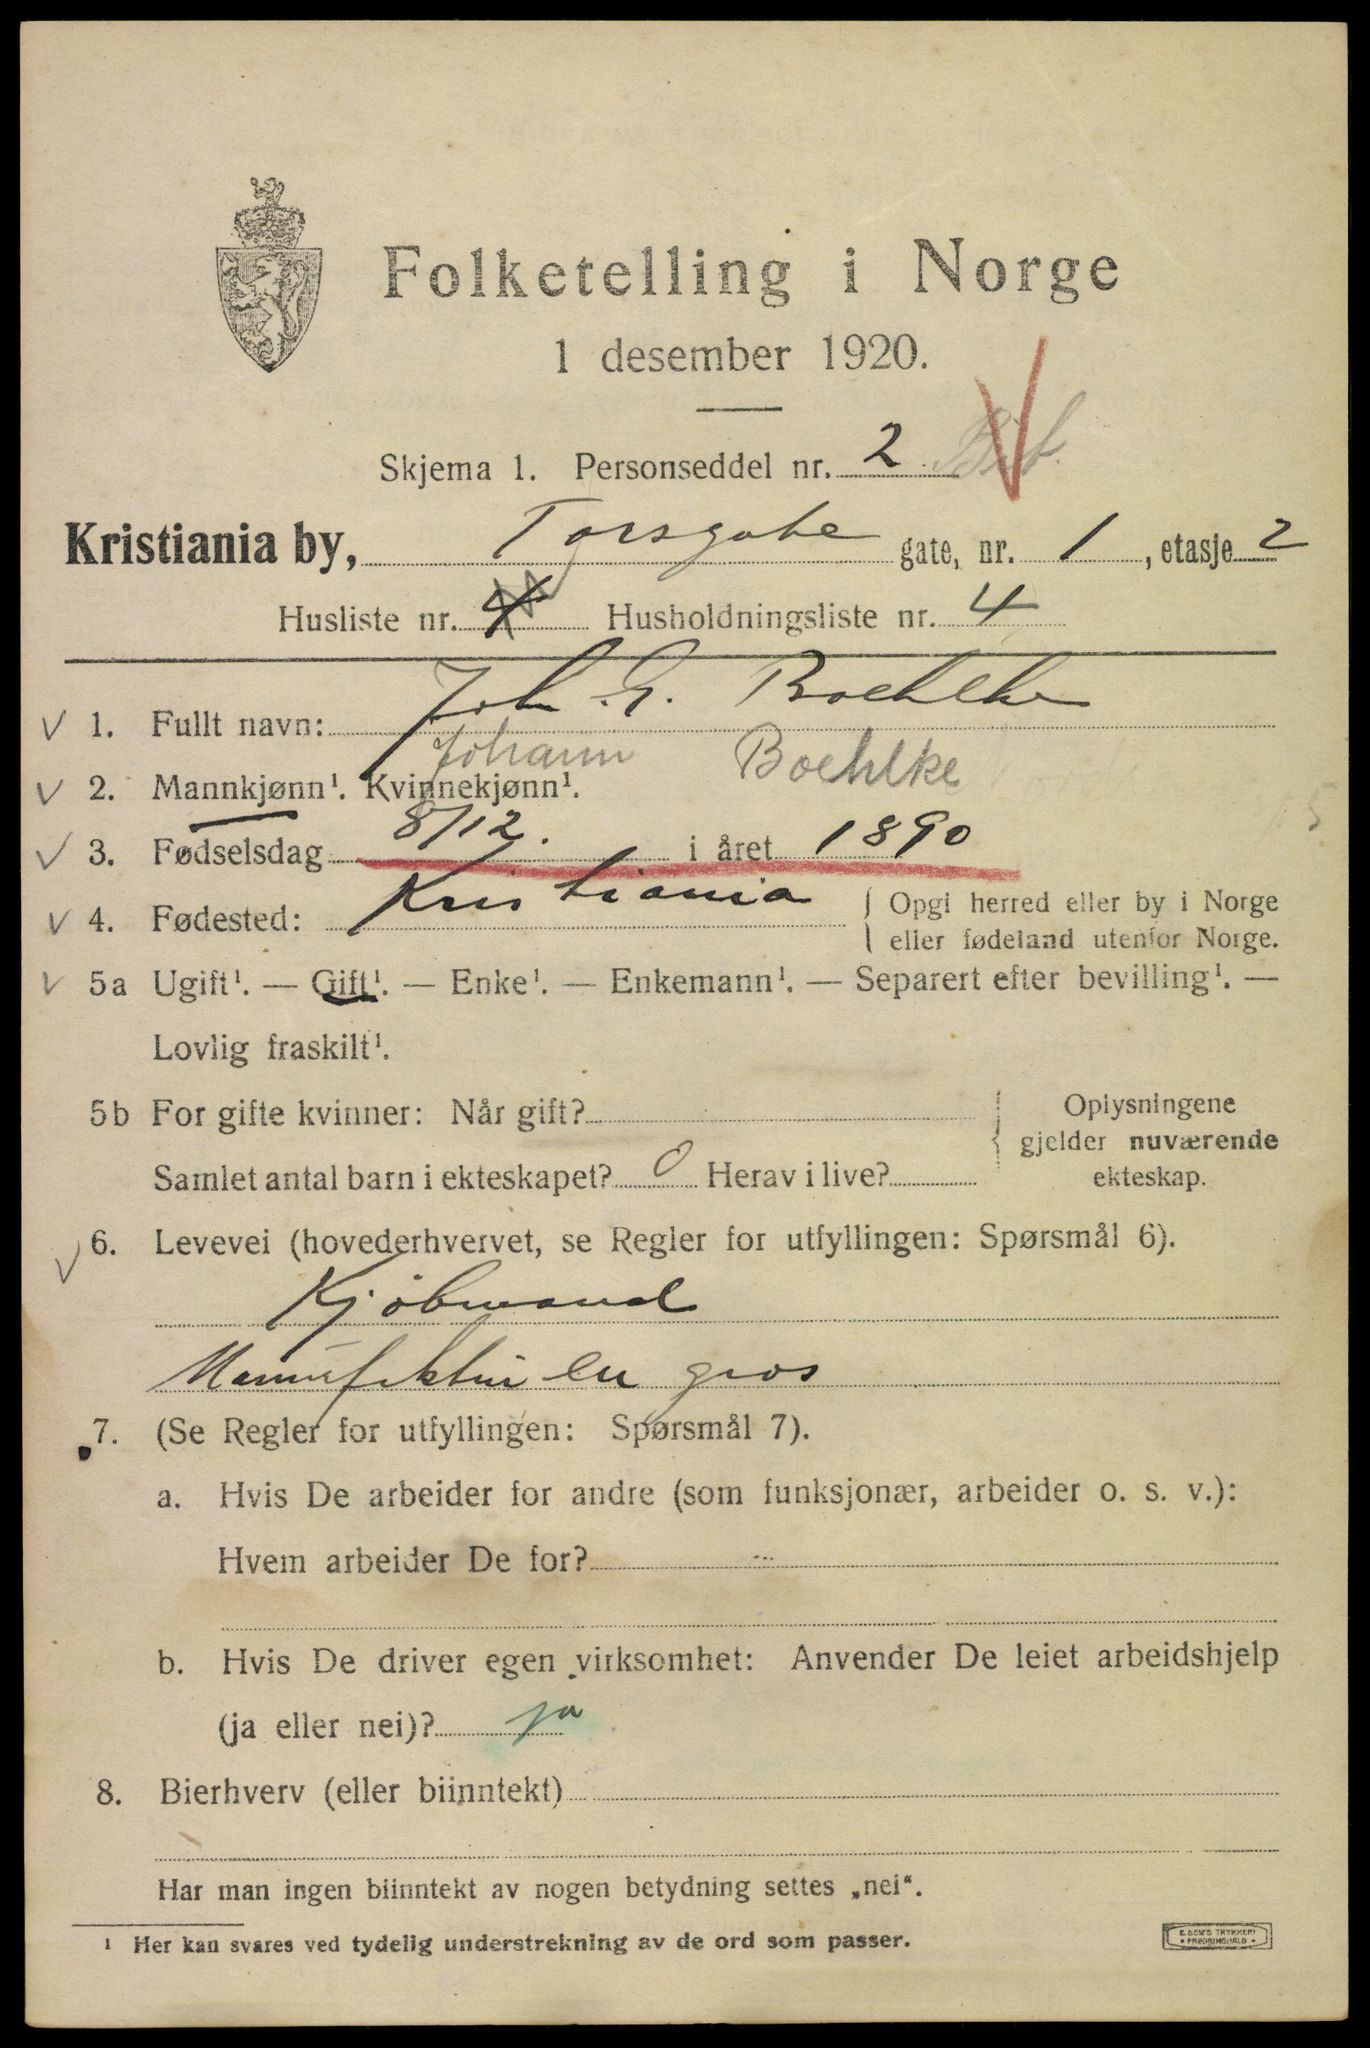 Folketelling i Norge
1 desember 1920.
Skjema 1. Personseddel nr. 2
Kristiania by, Torsgate gate, nr. 1, etasje 2
Husliste nr. 4 Husholdningsliste nr. 4
1. Fullt navn: Joh. G. Boehlke
Johann Boehlke
2. Mannkjønn¹. Kvinnekjønn¹.
3. Fødselsdag 8/12. i året 1890
4. Fødested: Kristiania { Opgi herred eller by i Norge
eller fødeland utenfor Norge.
5a Ugift¹. — Gift¹. — Enke¹. — Enkemann¹. — Separert efter bevilling¹. —
Lovlig fraskilt¹.
5b For gifte kvinner: Når gift? { Oplysningene
gjelder nuværende
Samlet antal barn i ekteskapet? 0 Herav i live? ekteskap.
6. Levevei (hovederhvervet, se Regler for utfyllingen: Spørsmål 6).
Kjöbmand
Manufaktur en gros
7. (Se Regler for utfyllingen: Spørsmål 7).
a. Hvis De arbeider for andre (som funksjonær, arbeider o. s. v.):
Hvem arbeider De for?
b. Hvis De driver egen virksomhet: Anvender De leiet arbeidshjelp
(ja eller nei)? ja
8. Bierhverv (eller biinntekt)
Har man ingen biinntekt av nogen betydning settes „nei“.
¹ Her kan svares ved tydelig understrekning av de ord som passer.
E. SEM'S TRYKKERI
FREDRIKSHALD